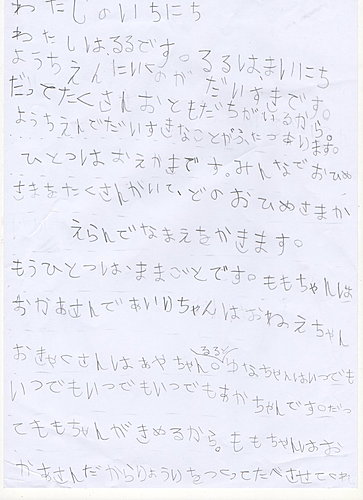 わたしのいちにち
わたしは、るるです。るるは、まいにち
ようちえんにいくのが だいすきです。
だってたくさんおともだちがいるから。
ようちえんでだいすきなことがふたつあります。
ひとつはおえかきです。みんなでおひめ
さまをたくさんかいて、どのおひめさまか
えらんでなまえをかきます。
もうひとつは、ままごとです。ももちゃんは
おかあさんであいりちゃんはおねえちゃん
おきゃくさんはあやちゃん。るるゆなちゃんはいつでも
いつでもいつでもいつでもあかちゃんです。だっ
てももちゃんがきめるから。ももちゃんはお
かあさんだからりょうりをつくってたべさせてくれ